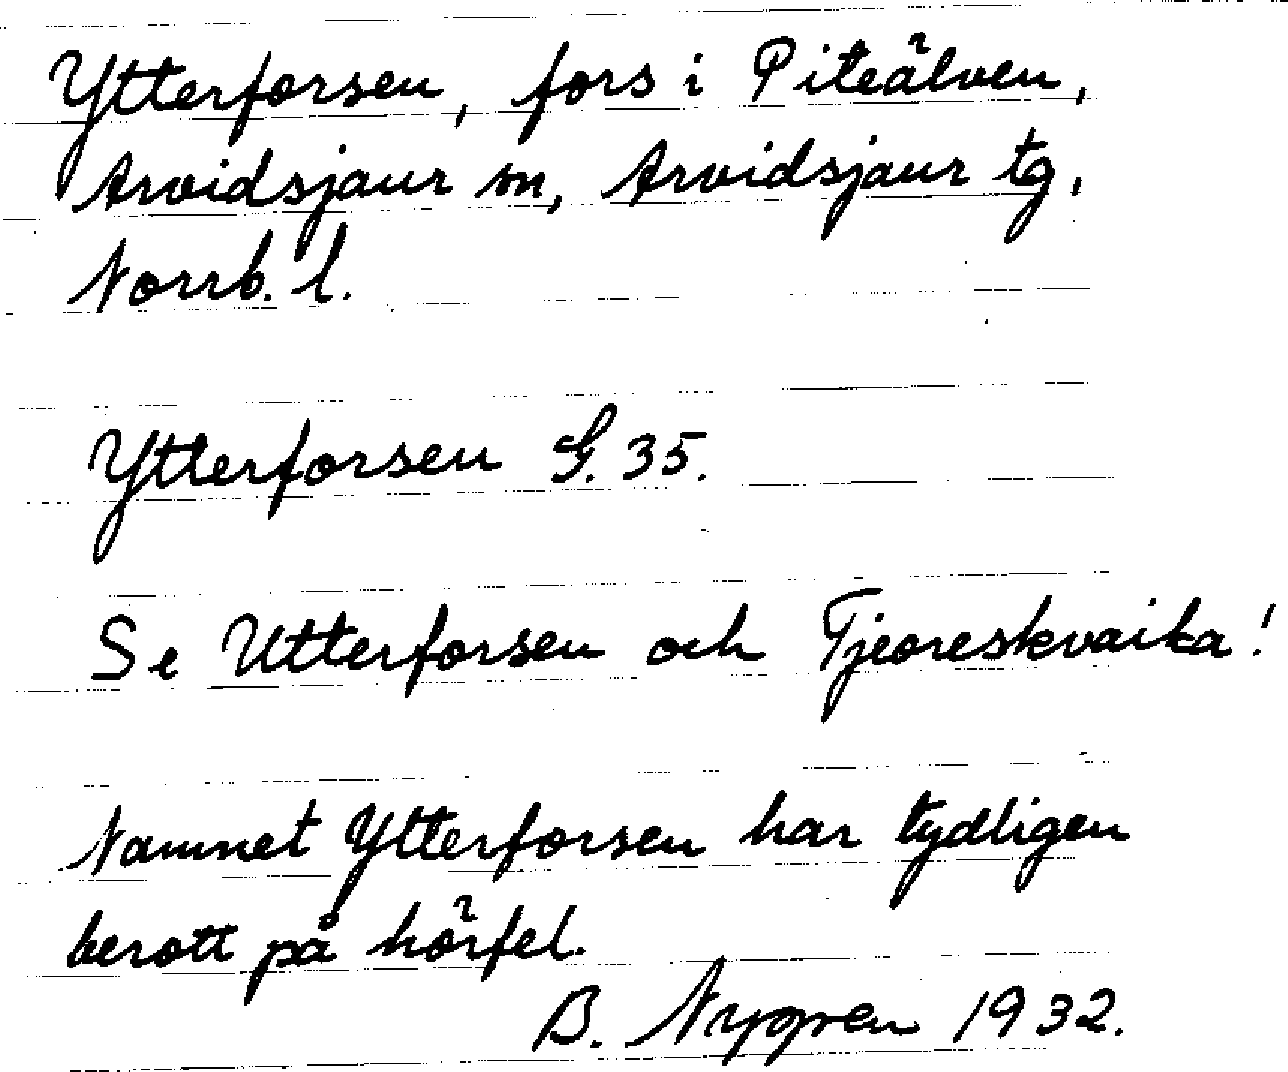 Ytterforsen, fors i Piteälven,
Arvidsjaur sn, Arvidsjaur tg,
Norrb. l.
Ytterforsen G. 35.
Se Utterforsen och Tjeoreskvaika!
Namnet Ytterforsen har tydligen
berott på hörfel.
B. Nygren 1932.